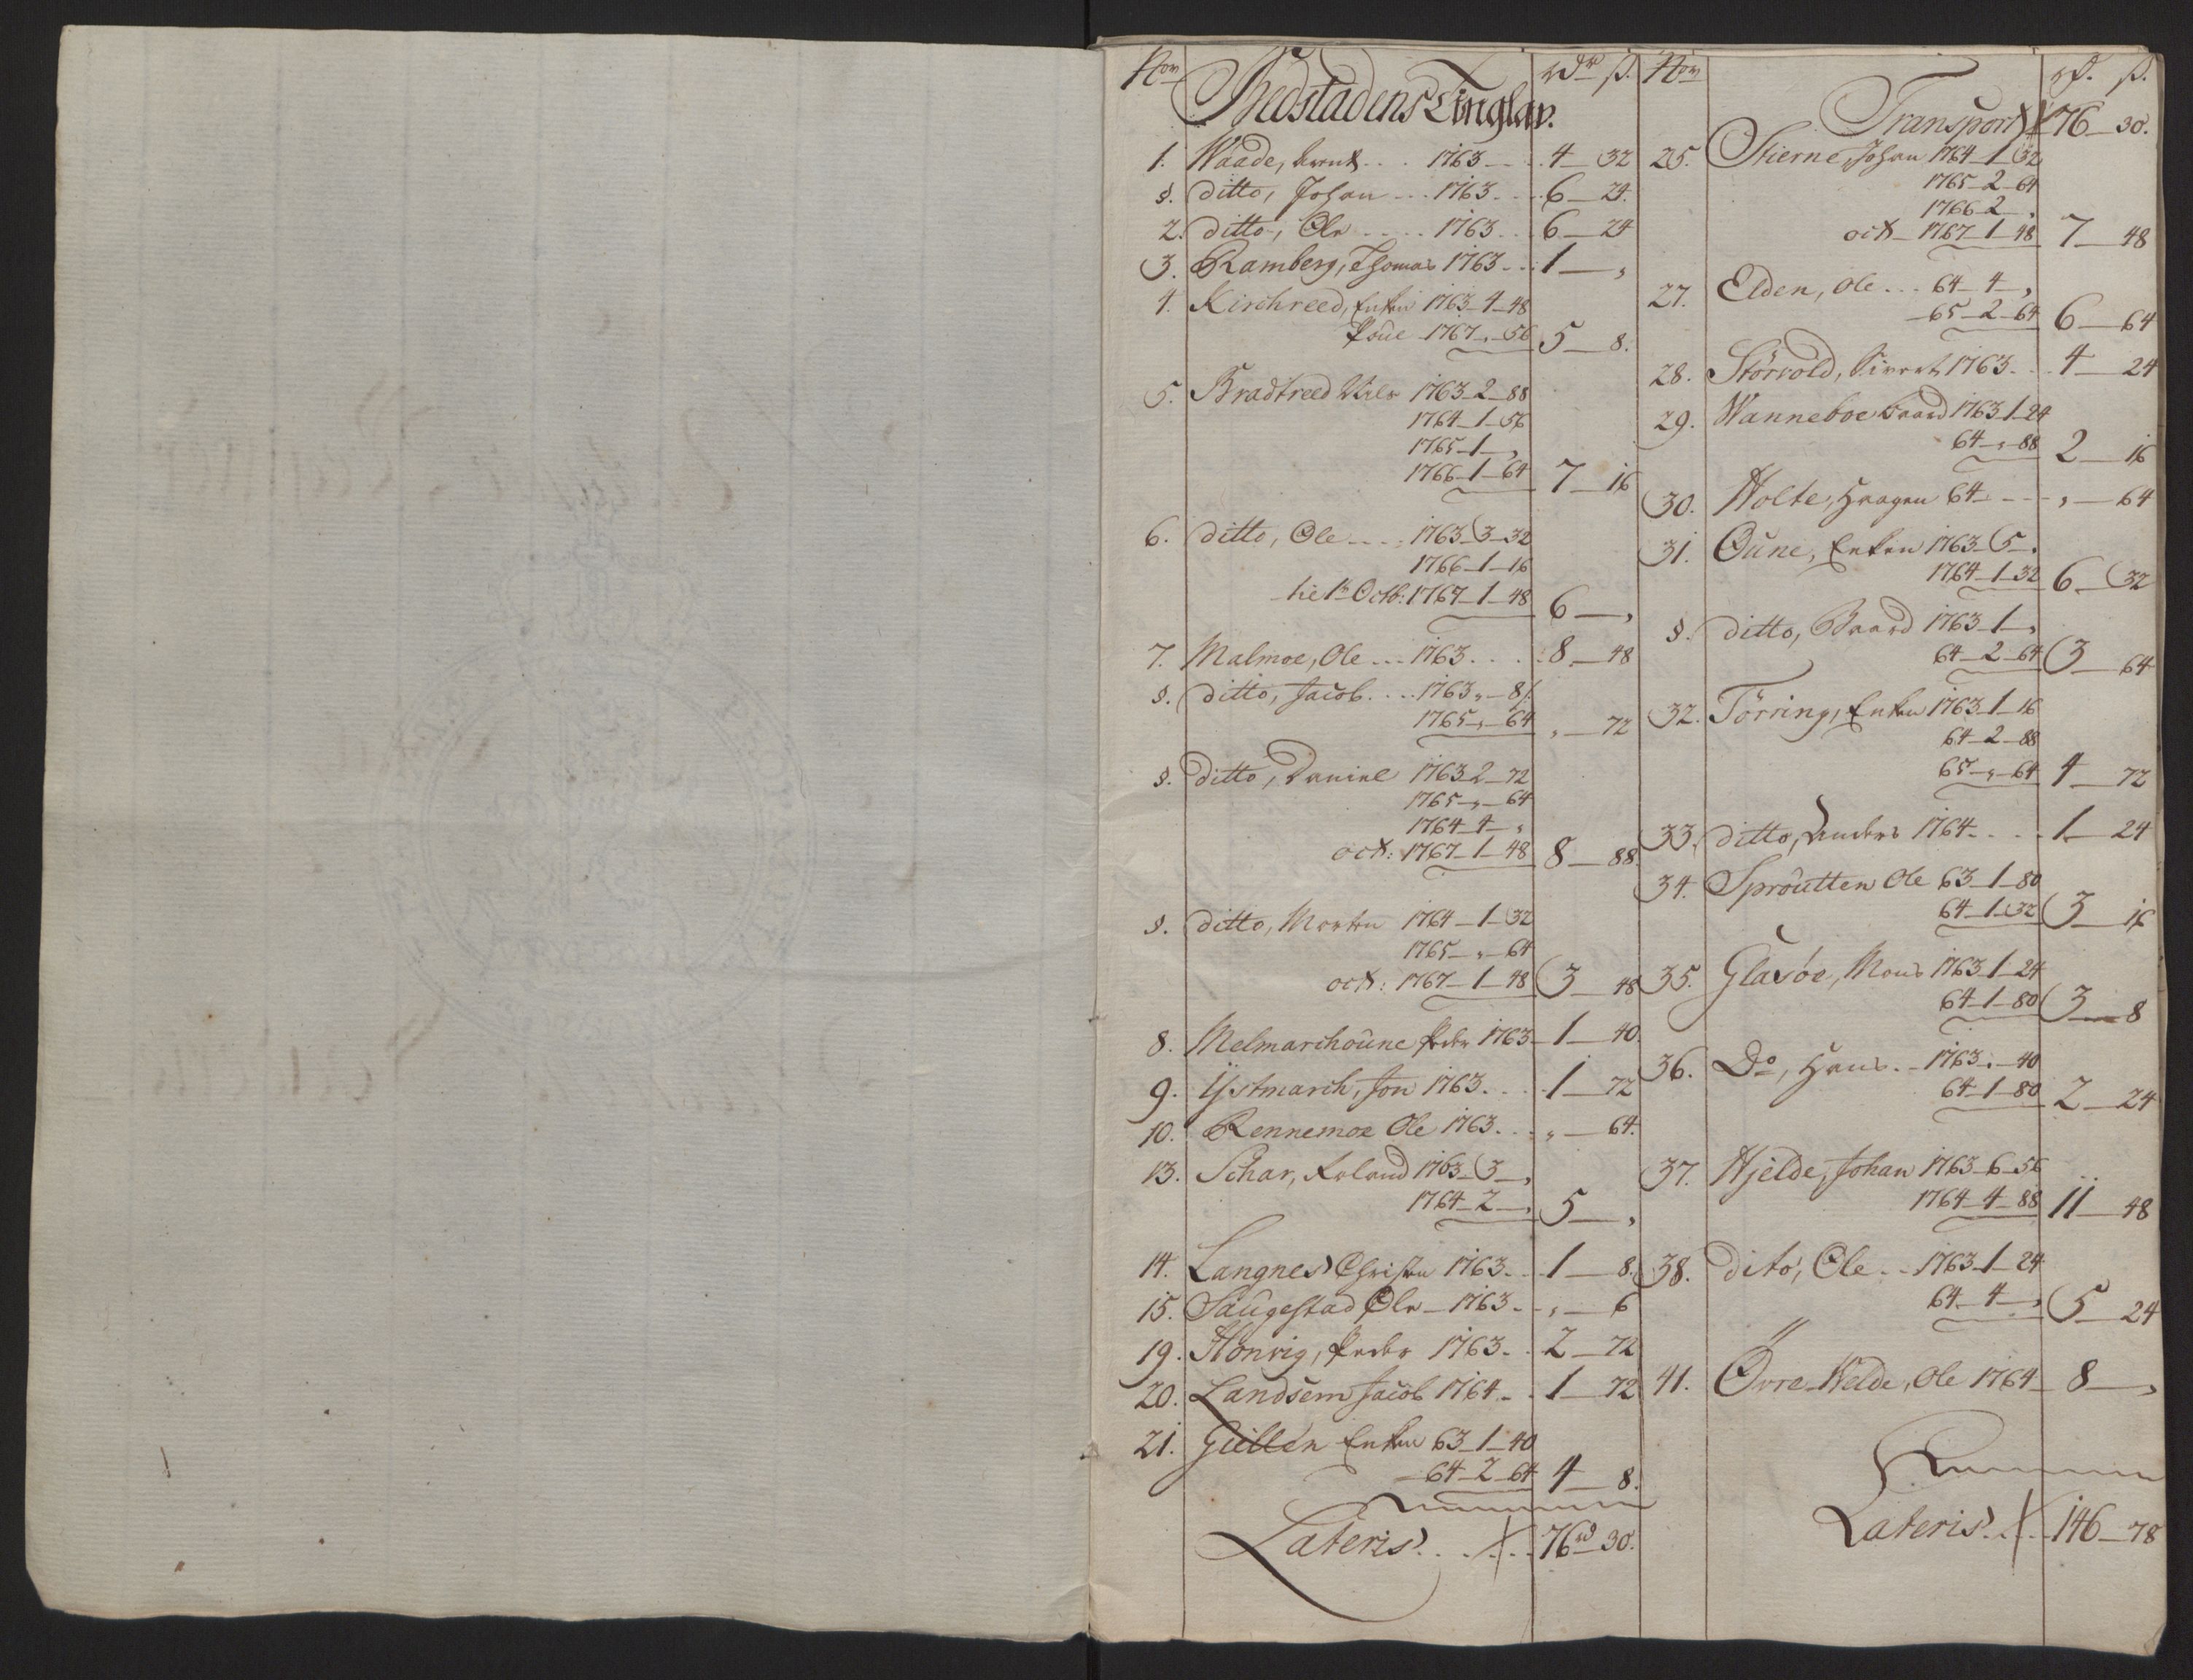 Nor Bedstadens Tinglav. rdr ß.
1. Waade, Arent... 1763... 4 — 32
§. ditto, Johan... 1763... 6 — 24.
2. ditto, Ole..... 1763... 6 — 24
3. Ramberg, Thomas 1763... 1 — „
4. Kirchreed, Enken 1763 - 4 - 48
1767 - „ - 56 5 — 8.
5. Bradtreed Nils 1763 - 2 - 88
1764 - 1 - 56
1765 - 1 - „
1766 - 1 - 64 7 — 16
6. ditto, Ole.... 1763 - 3 - 32
1766 - 1 - 16
Octb: 1767 - 1 - 48 6 — „
7. Malmoe, Ole... 1763..... 8 — 48
§. ditto, Jacob.... 1763 „ — 8.
1765 „ — 64 „ — 72
§. ditto, Daniel 1763 2 - 72
1765 - „ - 64
1764 4 - „
oct: 1767 - 1 - 48 8 — 88.
§. ditto, Morten 1764 - 1 - 32
1765 - „ - 64
oct: 1767 - 1 - 48 3 — 48
8. Melmarchoune Peder 1763 - 1 — 40.
9. Ÿstmarch, Jon 1763.... 1 — 72
10. Rennemoe Ole 1763... „ — 64.
13. Schar, Roland 1763 - 3 - „
1764 - 2 - „ 5 — „
14. Langnes Christen 1763... 1 — 8.
15. Saugestad Ole - 1763 - „ — 6
19. Honvig, Peder 1763.. 2 — 72
20. Landsem Jacob 1764.. 1 — 72
21. Güllen Enken 63 - 1 - 40
64 - 2 - 64 4 — 8.
Lateris..... 76 rd 30.
Nor rd. ß.
Transport 76 — 30.
25. Stierne, Johan 1764 - 1 - 32
1765 - 2 - 64
1766 - 2 - „
oct - 1767 - 1 - 48 7 — 48
27. Elden, Ole... 64 - 4 - „
65 - 2 - 64 6 — 64
28. Störvold, Sivert 1763... 4 — 24
29. Wanneboe Baard 1763 - 1 - 24
64 - „ - 88 2 — 16
30. Holte, Haagen 64 - - - „ — 64
31. Oune, Enken 1763 - 5 - „
1764 - 1 - 32 6 — 32
§. ditto, Baard 1763 - 1 - „
64 - 2 - 64 3 — 64
32. Törring, Enken 1763 - 1 - 16
64 - 2 - 88
65 - „ - 64 4 — 72
33. ditto, Anders 1764.... 1 — 24
34. Sproutten Ole 63 - 1 - 80
64 - 1 - 32 3 — 16
35. Glasøe, Mons 1763 - 1 - 24
64 - 1 - 80 3 — 8
36. Do, Hans.. 1763 „ - 40
64 - 1 - 80 2 — 24
37. Hjelde, Johan 1763 - 6 - 56
1764 - 4 - 88 11 — 48
38. dito, Ole.. 1763 - 1 - 24
64 - 4 - „ 5 — 24
41. Övre Helde, Ole 1764 - 8 — „
Lateris... 146 — 78